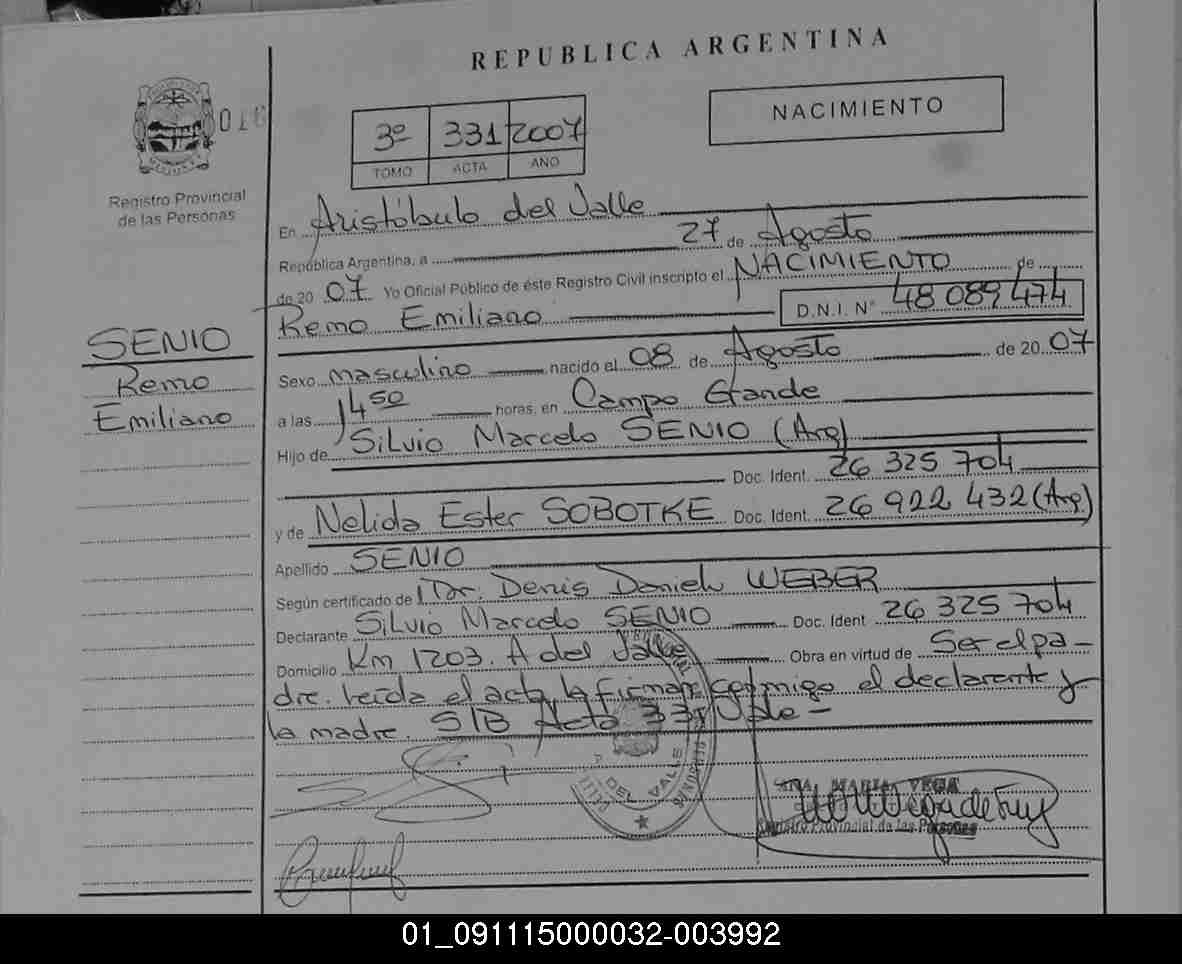 REPUBLICA ARGENTINA
NACIMIENTO
3º 331 2007
TOMO ACTA AÑO
Registro Provincial
de las Personas
En Aristóbulo del Valle
República Argentina, a 27 de Agosto
de 20 07 Yo Oficial Público de éste Registro Civil inscripto el NACIMIENTO de
Remo Emiliano D.N.I. Nº 48 089 474
SENIO
Remo
Emiliano
Sexo masculino nacido el 08 de Agosto de 20 07
a las 14 50 horas, en Campo Grande
Hijo de Silvio Marcelo SENIO (Arg)
Doc. Ident. 26 325 704
y de Nelida Ester SOBOTKE Doc. Ident. 26 922 432 (Arg.)
Apellido SENIO
Según certificado de Dr. Denis Daniel WEBER
Declarante Silvio Marcelo SENIO Doc. Ident 26 325 704
Domicilio Km 1203. A del Valle Obra en virtud de Ser el pa-
dre. leída el acta la firman conmigo el declarante y
la madre. S/B Acta 331 Vale -
DEL VALLE
MARIA VEGA
Registro Provincial de las Personas
01_091115000032-003992